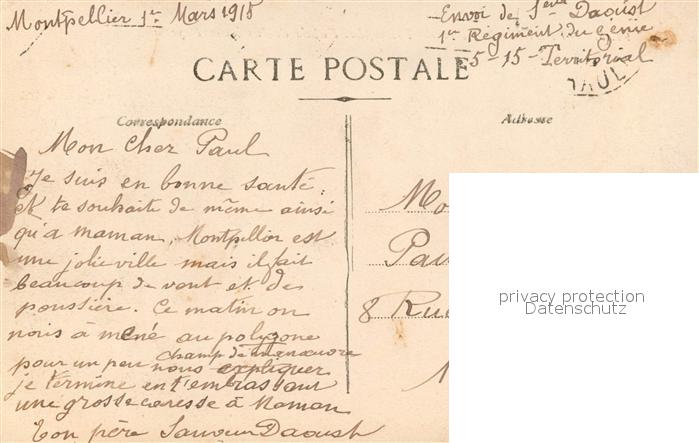 Montpellier 1er Mars 1915
Envoi de Daoust
1er Régiment du Génie
5-15-Territorial
CARTE POSTALE
Correspondance
Adresse
Mon Cher Paul
Je suis en bonne santé,
et te souhaite de même ainsi
qu'a maman, Montpellier est
une jolie ville mais il fait
beaucoup de vent et des
poussière. Ce matin on
nois à mené au polygone
champ de manœuvre
pour un peu nous expliquer
je termine en t'embrassant
une grosse caresse à Maman
Ton père Sauveur Daoust
8 Rue
privacy protection
Datenschutz